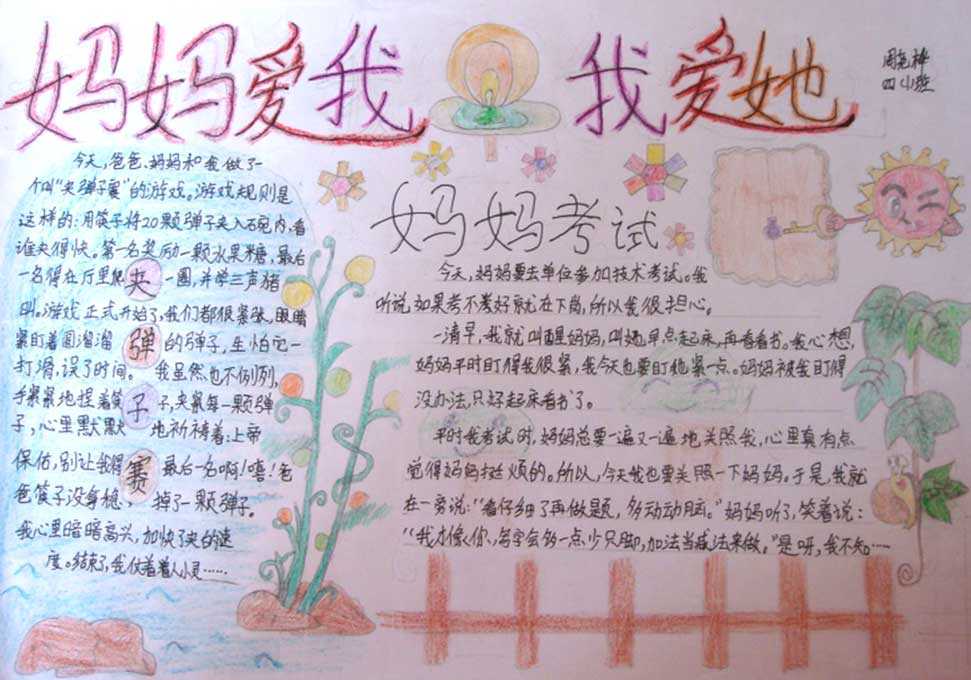 妈妈爱我 我爱她
四(1)班
今天,爸爸、妈妈和我做了一
个叫“夹弹子赛”的游戏。游戏规则是
这样的:用筷子将20颗弹子夹入碗内,看
谁夹得快。第一名奖励一颗水果糖,最后
一名得在厅里爬一圈,并学三声猪
叫。游戏正式开始了,我们都很紧张,眼睛
紧盯着圆溜溜的弹子,生怕它一
打滑,误了时间。我虽然也不例外,
手紧紧地捏着筷子,夹紧每一颗弹
子,心里默默地祈祷着:上帝
保佑,别让我得最后一名啊!嘻!爸
爸筷子没身稳,掉了一颗弹子。
我心里暗暗高兴,加快了夹的速
度。结束了,我仗着着人小灵……
夹
弹
子
赛
妈妈考试
今天,妈妈要去单位参加技术考试。我
听说,如果考不好就在下岗,所以我很担心。
一清早,我就叫醒妈妈,叫她早点起床,再看看书。我心想,
妈妈平时盯得我很紧,我今天也要盯她紧一点。妈妈被我盯得
没办法,只好起床看书了。
平时我考试时,妈妈总要一遍又一遍地关照我,心里真有点
觉得妈妈挺烦的。所以,今天我也要关照一下妈妈,于是,我就
在一旁说:“看仔细了再做题,多动动脑。”妈妈听了,笑着说:
“我才像你,写字会多一点少只脚,加法当减法来做。”是呀,我不知……